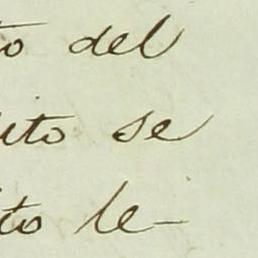 to del
ito se
to le-